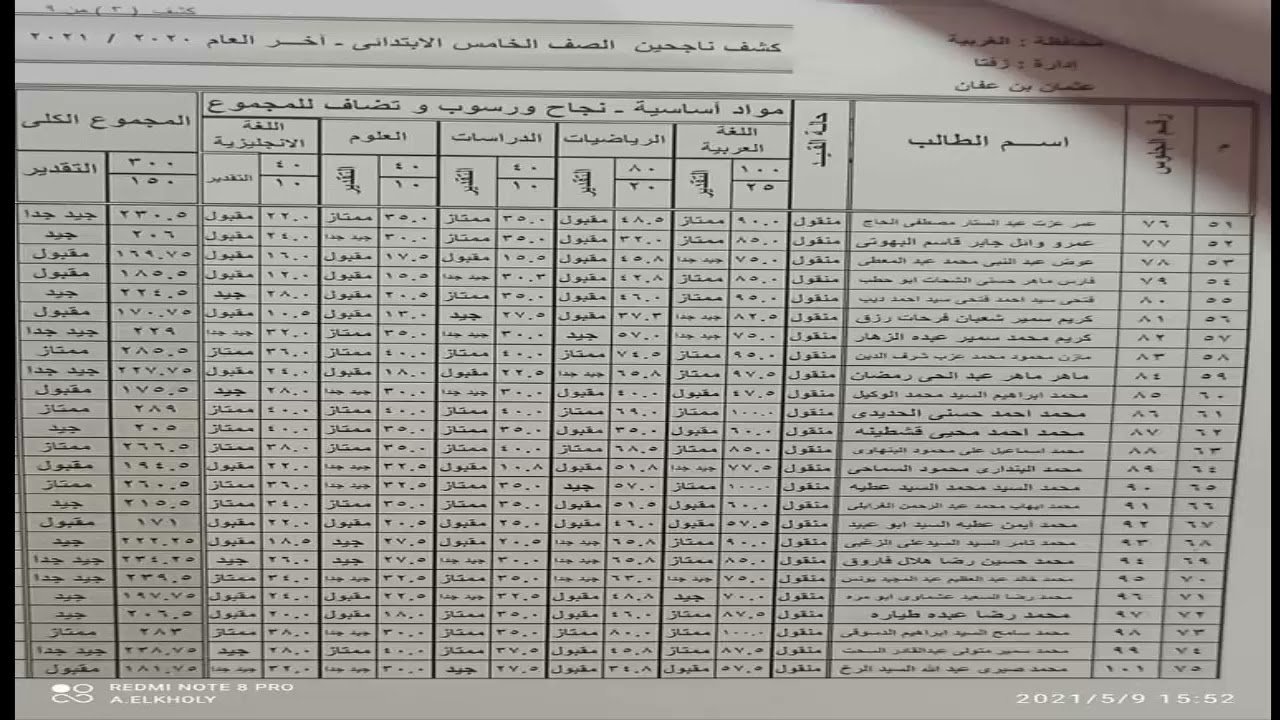 كشف (٣) من ٩
محافظة : الغربية
إدارة : زفتا
عثمان بن عفان
كشف ناجحين الصف الخامس الابتدائى - أخر العام ٢٠٢٠ / ٢٠٢١
م رقم الجلوس اسم الطالب حالة القيد مواد أساسية - نجاح ورسوب و تضاف للمجموع المجموع الكلى
اللغة العربية الرياضيات الدراسات العلوم اللغة الانجليزية
١٠٠ التقدير ٨٠ التقدير ٤٠ التقدير ٤٠ التقدير ٤٠ التقدير ٣٠٠ التقدير
٢٥ ٢٠ ١٠ ١٠ ١٠ ١٥٠
٥١ ٧٦ عمر عزت عبد الستار مصطفى الحاج منقول ٩٠.٠ ممتاز ٤٨.٥ مقبول ٣٥.٠ ممتاز ٣٥.٠ ممتاز ٢٢.٠ مقبول ٢٣٠.٥ جيد جدا
٥٢ ٧٧ عمرو وائل جابر قاسم البهوتى منقول ٨٥.٠ ممتاز ٣٢.٠ مقبول ٣٥.٠ ممتاز ٣٠.٠ جيد جدا ٢٤.٠ مقبول ٢٠٦ جيد
٥٣ ٧٨ عوض عبد النبى محمد عبد المعطى منقول ٧٥.٠ جيد جدا ٤٥.٨ مقبول ١٥.٥ مقبول ١٧.٥ مقبول ١٦.٠ مقبول ١٦٩.٧٥ مقبول
٥٤ ٧٩ فارس ماهر حسنى الشحات ابو حطب منقول ٨٥.٠ ممتاز ٤٢.٨ مقبول ٣٠.٣ جيد جدا ١٥.٥ مقبول ١٢.٠ مقبول ١٨٥.٥ مقبول
٥٥ ٨٠ فتحى سيد احمد فتحى سيد احمد ديب منقول ٩٥.٠ ممتاز ٤٦.٠ مقبول ٣٥.٠ ممتاز ٢٠.٥ مقبول ٢٨.٠ جيد ٢٢٤.٥ جيد
٥٦ ٨١ كريم سمير شعبان فرحات رزق منقول ٨٢.٥ جيد جدا ٣٧.٣ مقبول ٢٧.٥ جيد ١٣.٠ مقبول ١٠.٥ مقبول ١٧٠.٧٥ مقبول
٥٧ ٨٢ كريم محمد سمير عبده الزهار منقول ٧٥.٠ جيد جدا ٥٧.٠ جيد ٣٠.٠ جيد جدا ٣٥.٠ ممتاز ٣٢.٠ جيد جدا ٢٢٩ جيد جدا
٥٨ ٨٣ مازن محمود محمد عزب شرف الدين منقول ٩٥.٠ ممتاز ٧٤.٥ ممتاز ٤٠.٠ ممتاز ٤٠.٠ ممتاز ٣٦.٠ ممتاز ٢٨٥.٥ ممتاز
٥٩ ٨٤ ماهر ماهر عبد الحى رمضان منقول ٩٧.٥ ممتاز ٦٥.٨ جيد جدا ٢٢.٥ مقبول ١٨.٠ مقبول ٢٤.٠ مقبول ٢٢٧.٧٥ جيد جدا
٦٠ ٨٥ محمد ابراهيم السيد محمد الوكيل منقول ٤٧.٥ مقبول ٤٠.٠ مقبول ٣٠.٠ جيد جدا ٣٠.٠ جيد جدا ٢٨.٠ جيد ١٧٥.٥ مقبول
٦١ ٨٦ محمد احمد حسنى الحديدى منقول ١٠٠.٠ ممتاز ٦٩.٠ ممتاز ٤٠.٠ ممتاز ٤٠.٠ ممتاز ٤٠.٠ ممتاز ٢٨٩ ممتاز
٦٢ ٨٧ محمد احمد محيى قشطينه منقول ٦٠.٠ مقبول ٣٥.٠ مقبول ٣٥.٠ ممتاز ٣٥.٠ ممتاز ٤٠.٠ ممتاز ٢٠٥ جيد
٦٣ ٨٨ محمد اسماعيل على محمود البنهاوى منقول ٨٥.٠ ممتاز ٦٨.٥ ممتاز ٤٠.٠ ممتاز ٣٥.٠ ممتاز ٣٨.٠ ممتاز ٢٦٦.٥ ممتاز
٦٤ ٨٩ محمد البندارى محمود السماحى منقول ٧٧.٥ جيد جدا ٥١.٨ مقبول ١٠.٨ مقبول ٣٢.٥ جيد جدا ٢٢.٠ مقبول ١٩٤.٥ مقبول
٦٥ ٩٠ محمد السيد محمد السيد عطيه منقول ١٠٠.٠ ممتاز ٥٧.٠ جيد ٣٥.٠ ممتاز ٣٢.٥ جيد جدا ٣٦.٠ ممتاز ٢٦٠.٥ ممتاز
٦٦ ٩١ محمد ايهاب محمد عبد الرحمن الغرابلى منقول ٦٠.٠ مقبول ٥١.٥ مقبول ٣٥.٠ ممتاز ٣٥.٠ ممتاز ٣٤.٠ ممتاز ٢١٥.٥ جيد
٦٧ ٩٢ محمد أيمن عطيه السيد ابو عبيد منقول ٥٧.٥ مقبول ٤٦.٠ مقبول ٢٥.٠ مقبول ٢٠.٥ مقبول ٢٢.٠ مقبول ١٧١ مقبول
٦٨ ٩٣ محمد تامر السيد السيدعلى الزغبى منقول ٩٠.٠ ممتاز ٦٥.٨ جيد جدا ٢٠.٥ مقبول ٢٧.٥ جيد ١٨.٥ مقبول ٢٢٢.٢٥ جيد
٦٩ ٩٤ محمد حسين رضا هلال فاروق منقول ٨٥.٠ ممتاز ٦٥.٨ جيد جدا ٣٠.٠ جيد جدا ٢٧.٥ جيد ٢٦.٠ جيد ٢٣٤.٢٥ جيد جدا
٧٠ ٩٥ محمد خالد عبد العظيم عبد المجيد يونس منقول ٧٥.٠ جيد جدا ٦٣.٠ جيد جدا ٣٥.٠ ممتاز ٣٢.٥ جيد جدا ٣٤.٠ ممتاز ٢٣٩.٥ جيد جدا
٧١ ٩٦ محمد رضا السعيد عشماوى ابو مره منقول ٧٠.٠ جيد ٤٨.٨ مقبول ٣٢.٥ جيد جدا ٢٢.٥ مقبول ٢٤.٠ مقبول ١٩٧.٧٥ جيد
٧٢ ٩٧ محمد رضا عبده طياره منقول ٨٧.٥ ممتاز ٤٦.٠ مقبول ٣٥.٠ ممتاز ١٨.٠ مقبول ٢٠.٠ مقبول ٢٠٦.٥ جيد
٧٣ ٩٨ محمد سامح السيد ابراهيم الدسوقى منقول ١٠٠.٠ ممتاز ٨٠.٠ ممتاز ٣٥.٠ ممتاز ٣٠.٠ جيد جدا ٣٨.٠ ممتاز ٢٨٣ ممتاز
٧٤ ٩٩ محمد سمير متولى عبدالقادر السحت منقول ٨٧.٥ ممتاز ٤٥.٨ مقبول ٣٧.٥ ممتاز ٤٠.٠ ممتاز ٢٨.٠ جيد ٢٣٨.٧٥ جيد جدا
٧٥ ١٠١ محمد صبرى عبد الله السيد الرخ منقول ٥٧.٥ مقبول ٣٤.٨ مقبول ٢٧.٥ جيد ٣٠.٠ جيد جدا ٣٢.٠ جيد جدا ١٨١.٧٥ مقبول
REDMI NOTE 8 PRO
A.ELKHOLY
2021/5/9 15:52